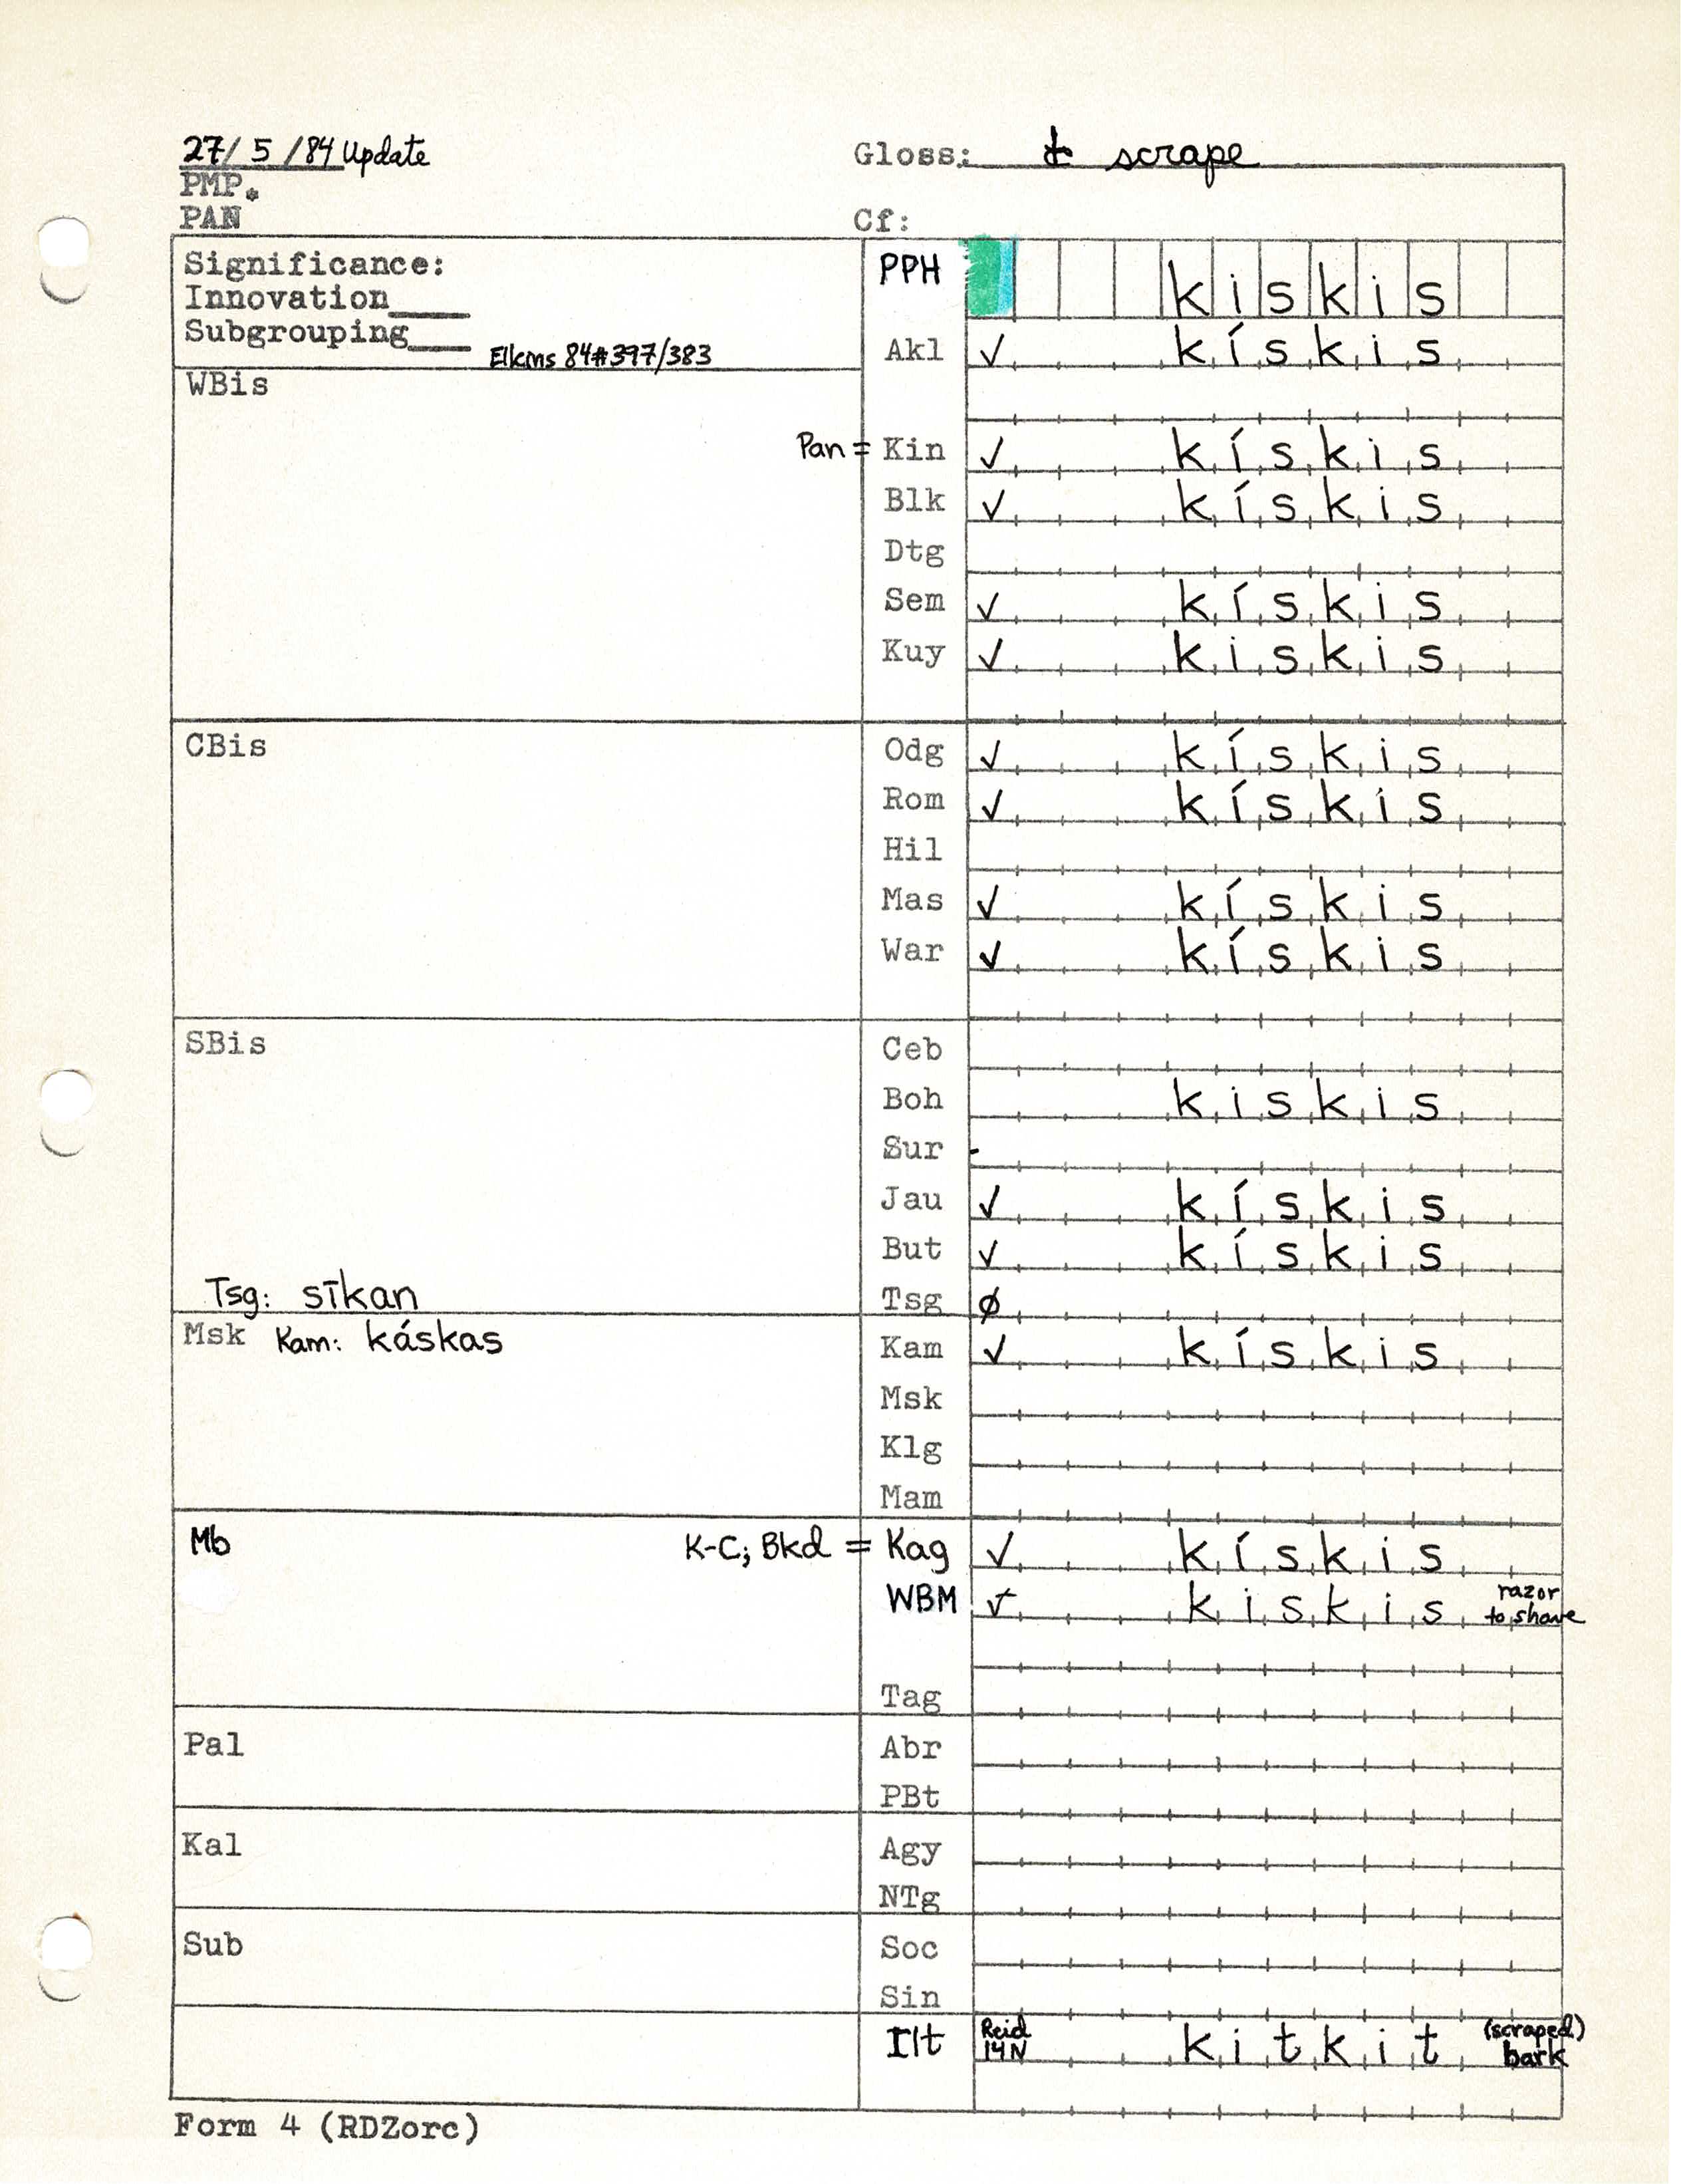 27/ 5 /84 Update Gloss: to scrape
PMP *
PAN Cf:
Significance: PPH kiskis
Innovation____
Subgrouping____ Elkins 84#397/383
Akl ✓ kískis
WBis
Pan = Kin ✓ kískis
Blk ✓ kískis
Dtg
Sem ✓ kískis
Kuy ✓ kiskis
CBis Odg ✓ kískis
Rom ✓ kískis
Hil
Mas ✓ kískis
War ✓ kískis
SBis Ceb
Boh kiskis
Sur
Jau ✓ kískis
But ✓ kískis
Tsg: sīkan Tsg ∅
Msk Kam: káskas Kam ✓ kískis
Msk
Klg
Mam
Mb K-C; Bkd = Kag ✓ kískis
WBM ✓ kiskis razor to shave
Tag
Pal Abr
PBt
Kal Agy
NTg
Sub Soc
Sin
Ilt Reid 14N kitkit (scraped) bark
Form 4 (RDZorc)